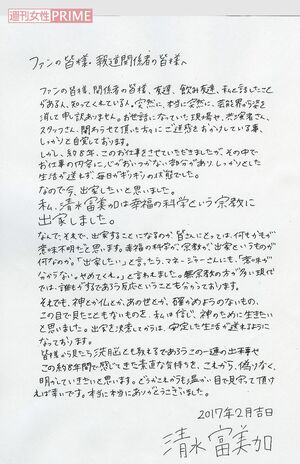 週刊女性PRIME
ファンの皆様・報道関係者の皆様へ
ファンの皆様、関係者の皆様、友達、飲み友達、私と話したこと
がある人、知ってくれている人。突然に、本当に突然に、芸能界から姿を
消して申し訳ありません。お世話になっていた現場や、共演者さん、
スタッフさん、関わらせて頂いた方々にご迷惑をおかけしている事、
しっかりと自覚しております。
しかし、約8年、このお仕事をさせていただきましたが、その中で
お仕事の内容に、心がおいつかない部分があり、しっかりとした
生活が送れず、毎日がギリギリの状態でした。
なので今、出家したいと思いました。
私、清水富美加は幸福の科学という宗教に
出家しました。
なんで、それで、出家することになるのか、皆さんにとっては、何もかもが
意味不明だと思います。幸福の科学が、宗教が、出家というものが
何なのか。「出家したい」と言ったら、マネージャーさんにも、「意味が
分からない。やめてくれ。」と言われました。無宗教の方が多い現代
では、誰もがするであろう反応ということも分かっております。
それでも、神とか仏とか、あの世とか、確かめようのないもの、
この目で見たこともないものを、私は信じ、神のために生きたい
と思いました。出家を決意してからは、安定した生活が送れるように
なっております。
皆様から見たら洗脳とも取れるであろうこの一連の出来事や
この約8年間で感じてきた素直な気持ちを、これから、偽りなく、
明かしていきたいと思います。どうかこれからも温かい目で見守って頂け
れば幸いです。本当に本当にありがとうございました。
2017年2月吉日
清水富美加